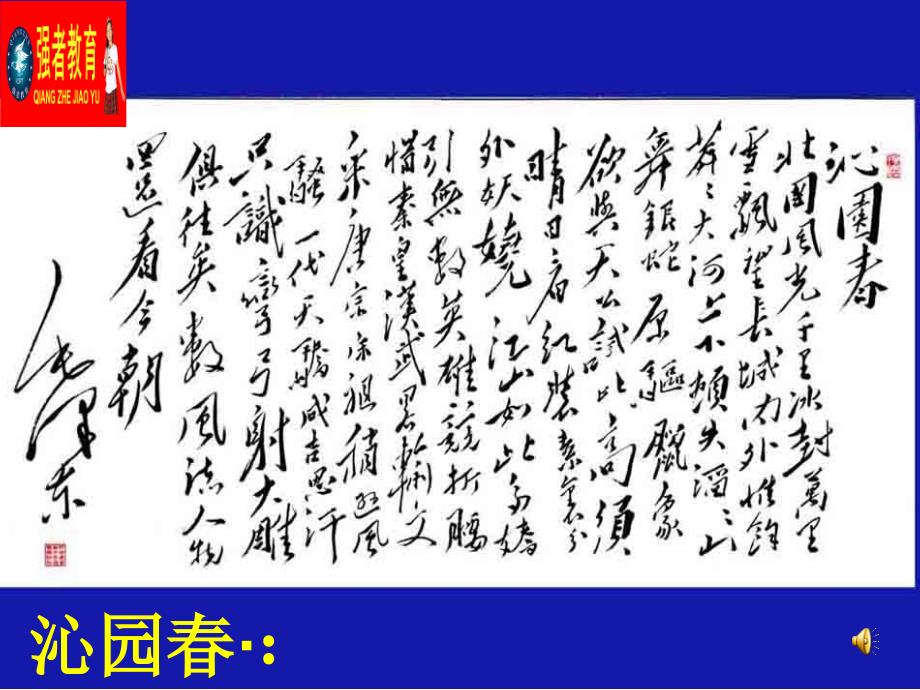 强者教育
QIANG ZHE JIAO YU
沁園春
北國風光千里冰封萬里
雪飄望長城内外惟餘
莽々大河上下頓失滔々山
舞銀蛇原驅臘象
欲與天公試比高須
晴日看紅裝素裹分
外妖嬈江山如此多嬌
引無數英雄競折腰
惜秦皇漢武略輸文
采唐宗宋祖稍遜風
騷一代天驕成吉思汗
只識彎弓射大雕
俱往矣數風流人物
還看今朝
毛澤東
沁园春·: